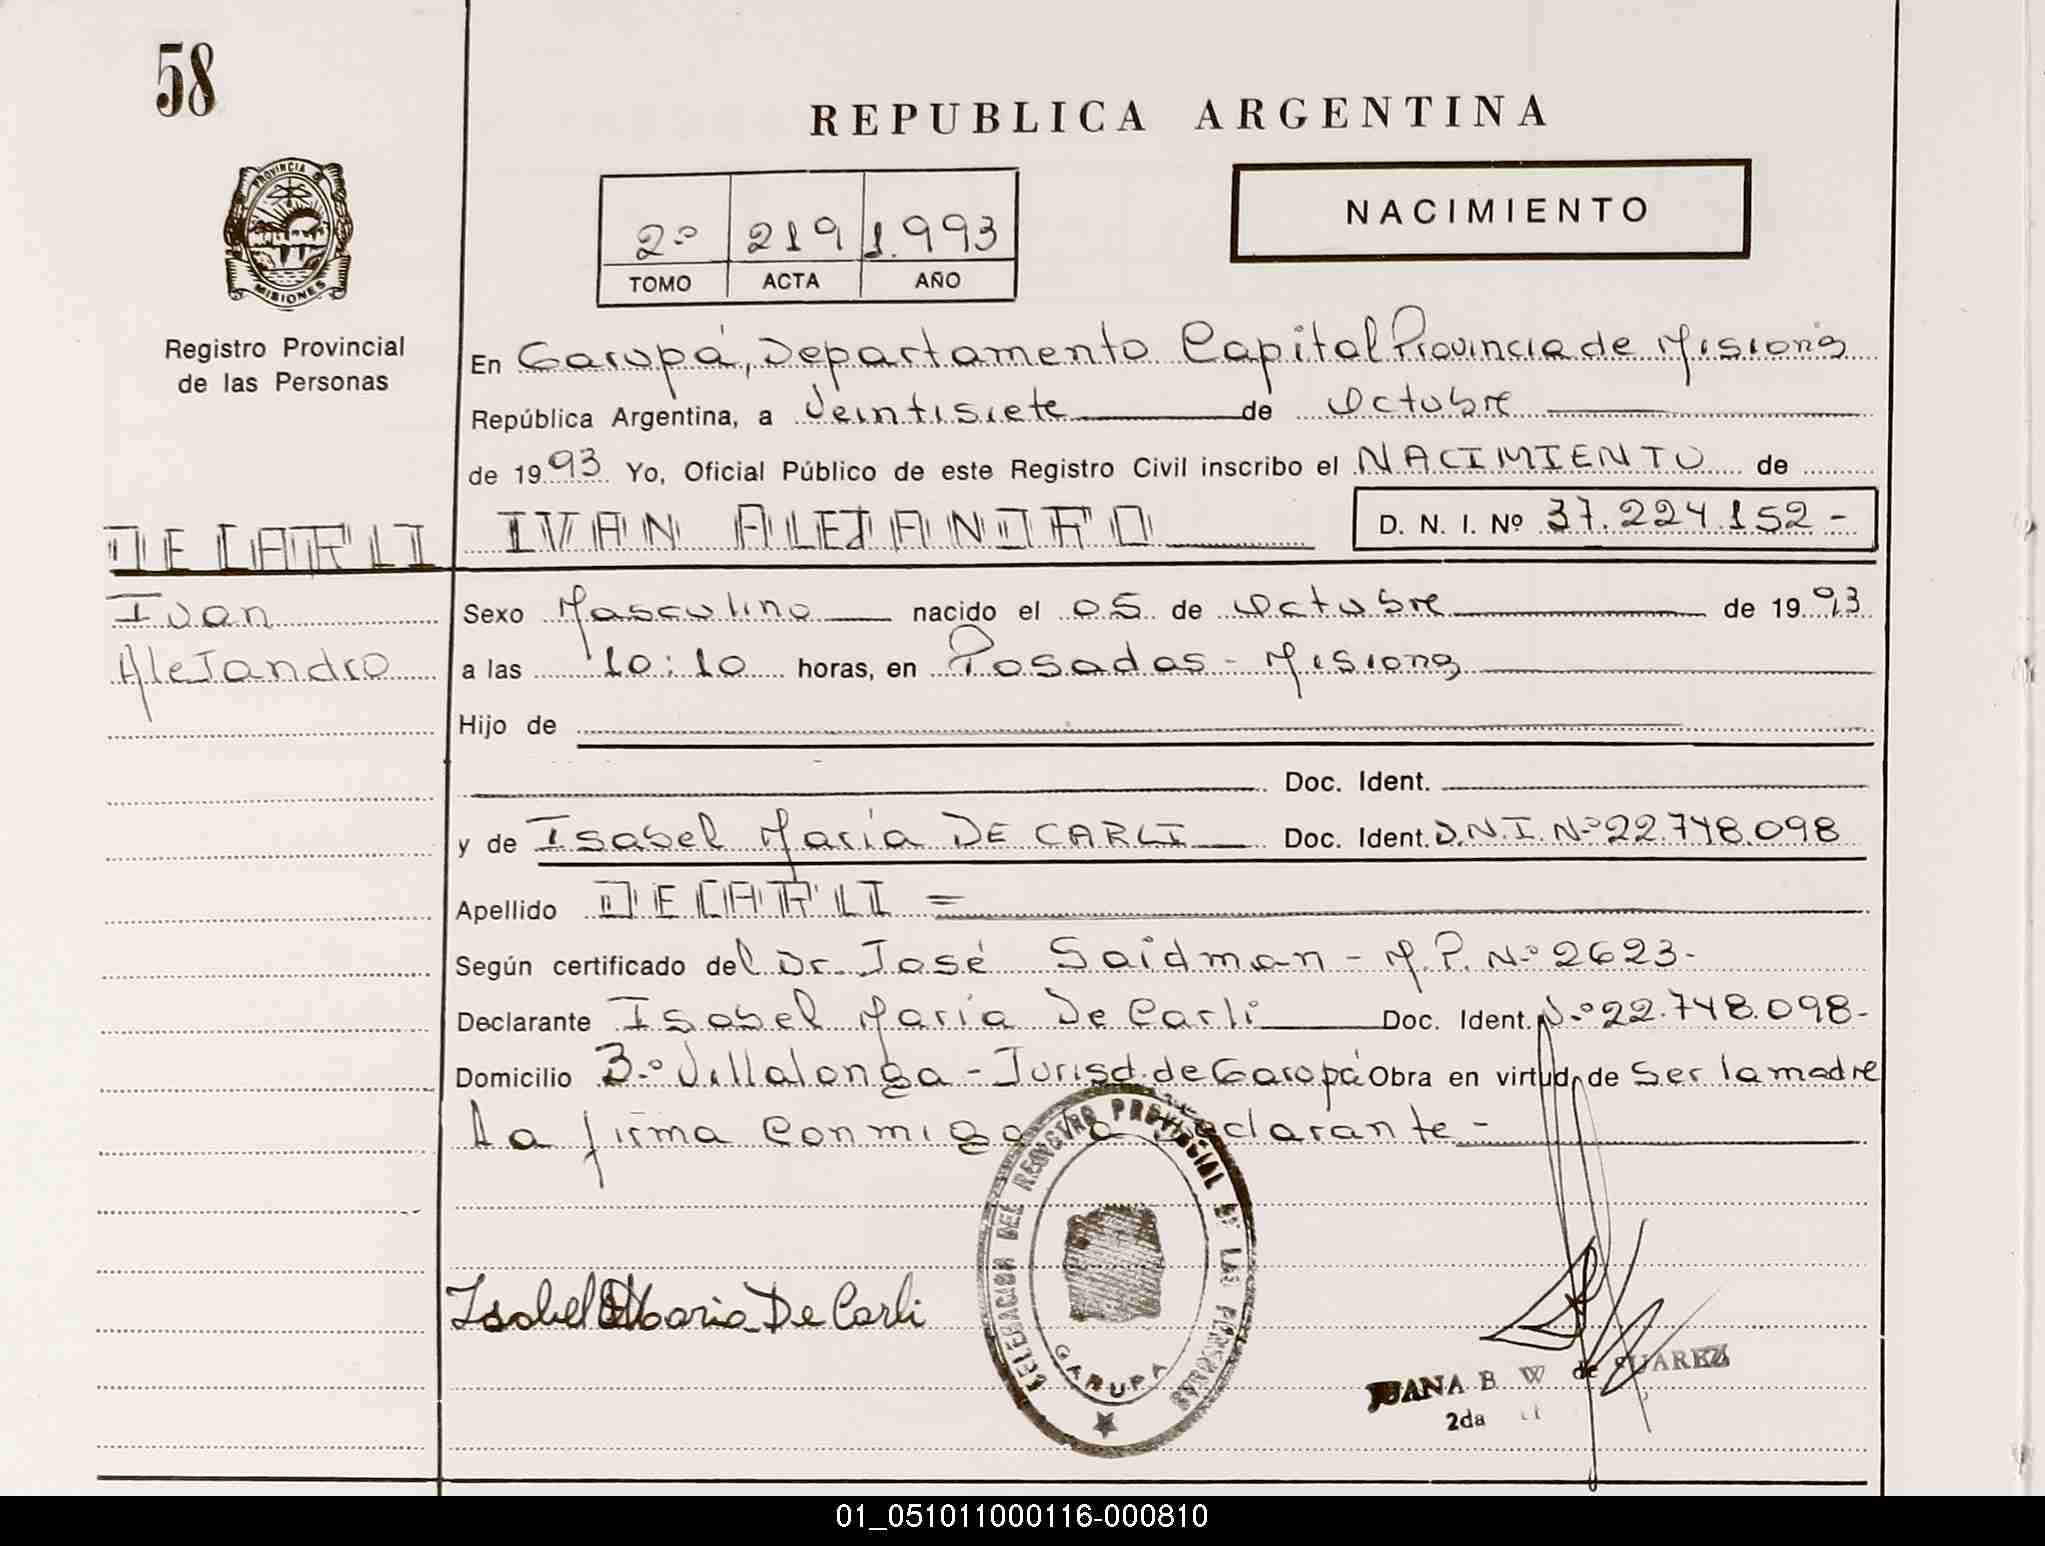 58
REPUBLICA ARGENTINA
NACIMIENTO
2º 219 1.993
TOMO ACTA AÑO
PROVINCIA DE
MISIONES
Registro Provincial
de las Personas
En Garupá, Departamento Capital Provincia de Misiones
República Argentina, a Veintisiete de Octubre
de 1993 Yo, Oficial Público de este Registro Civil inscribo el NACIMIENTO de
DE CARLI IVAN ALEJANDRO D. N. I. Nº 37.224.152-
Ivan
Alejandro
Sexo Masculino nacido el 05 de Octubre de 1993
a las 10:10 horas, en Posadas - Misiones
Hijo de
Doc. Ident.
y de Isabel María DE CARLI Doc. Ident. D.N.I. Nº 22.748.098
Apellido DE CARLI =
Según certificado del Dr. José Saidman - M.P. Nº 2623-
Declarante Isabel María De Carli Doc. Ident. Nº 22.748.098-
Domicilio Bº Villalonga - Jurisd. de Garupá Obra en virtud de Ser la madre
La firma Conmigo la declarante -
DELEGACION DEL REGISTRO PROVINCIAL DE LAS PERSONAS
GARUPA
Isabel Maria De Carli
JUANA B W de SUAREZ
2da
01_051011000116-000810